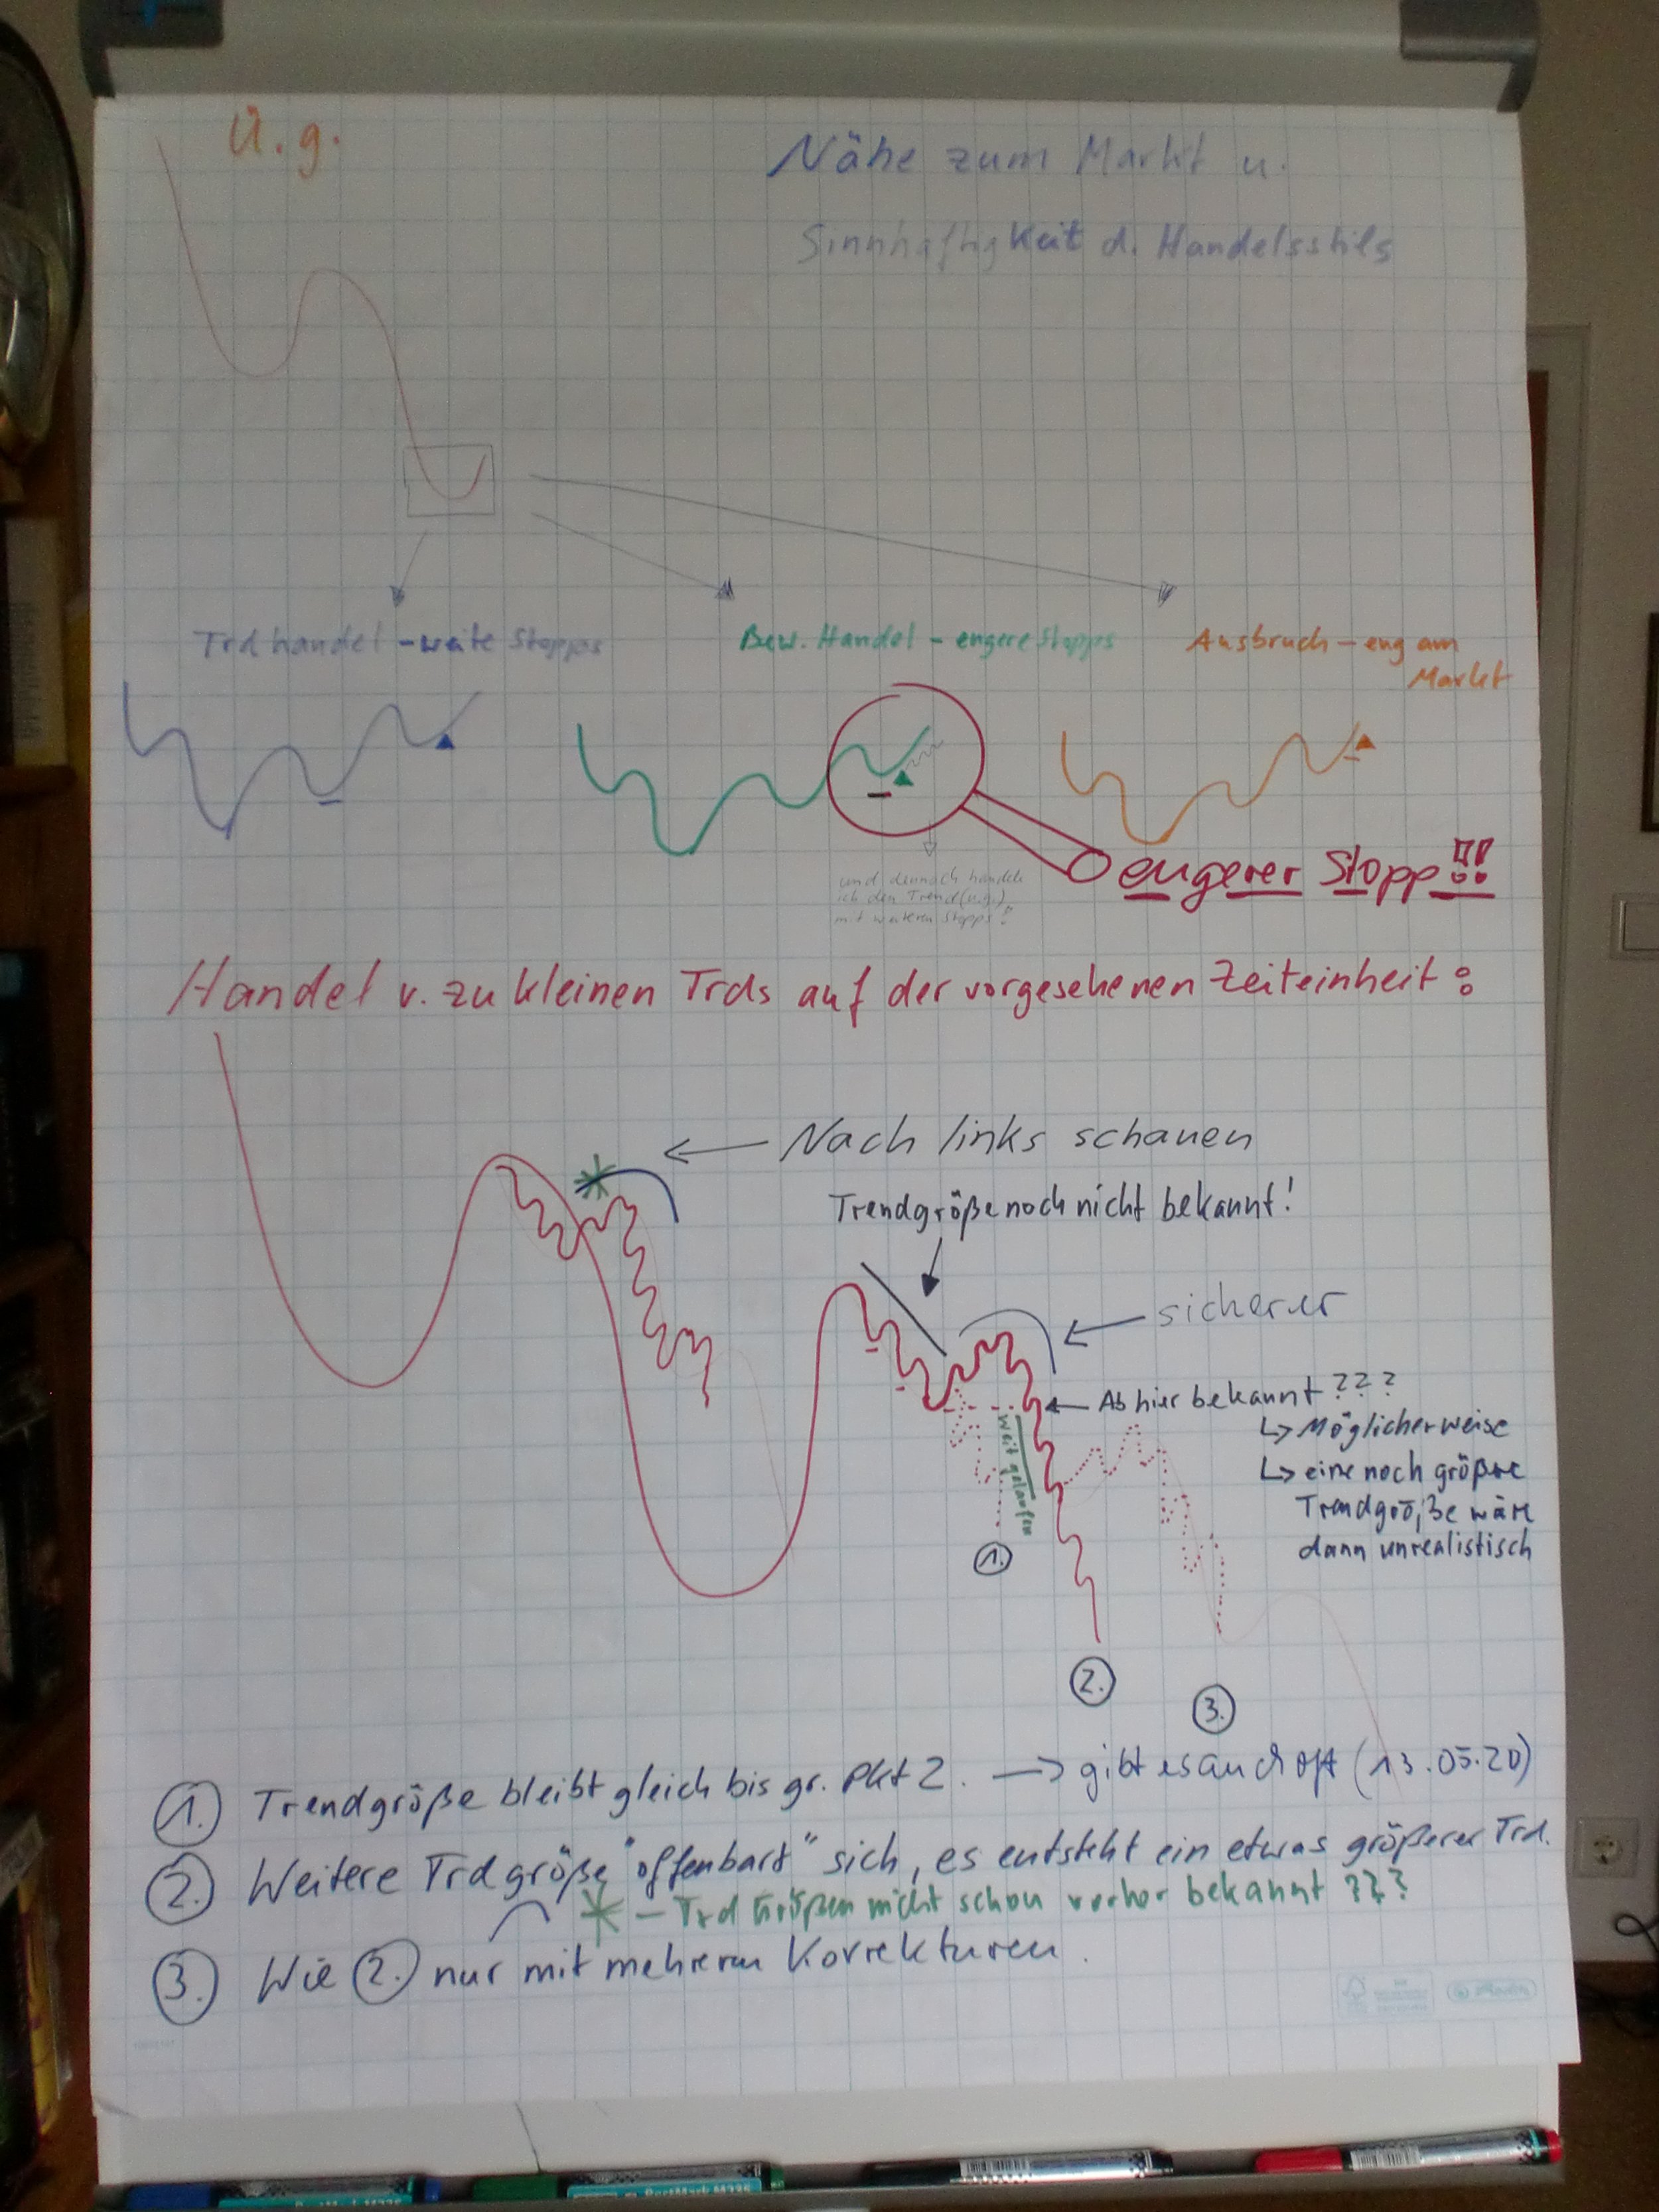 Ü.g.
Nähe zum Markt u.
Sinnhaftigkeit d. Handelsstils
Trdhandel - weite Stopps
Bew. Handel - engere Stopps
Ausbruch - eng am
Markt
engerer Stopp!!!
und dennoch handele
ich den Trend (u.g.)
mit weiteren Stopps!!
Handel v. zu kleinen Trds auf der vorgesehenen Zeiteinheit:
Nach links schauen
Trendgröße noch nicht bekannt!
sicherer
Ab hier bekannt???
↳ Möglicherweise
↳ eine noch größere
Trendgröße wäre
dann unrealistisch
weit gelaufen
1.
2.
3.
1. Trendgröße bleibt gleich bis gr. Pkt 2. → gibt es auch oft (13.05.20)
2. Weitere Trdgröße "offenbart" sich, es entsteht ein etwas größerer Trd.
* - Trd Größen nicht schon vorher bekannt???
3. Wie 2. nur mit mehreren Korrekturen.